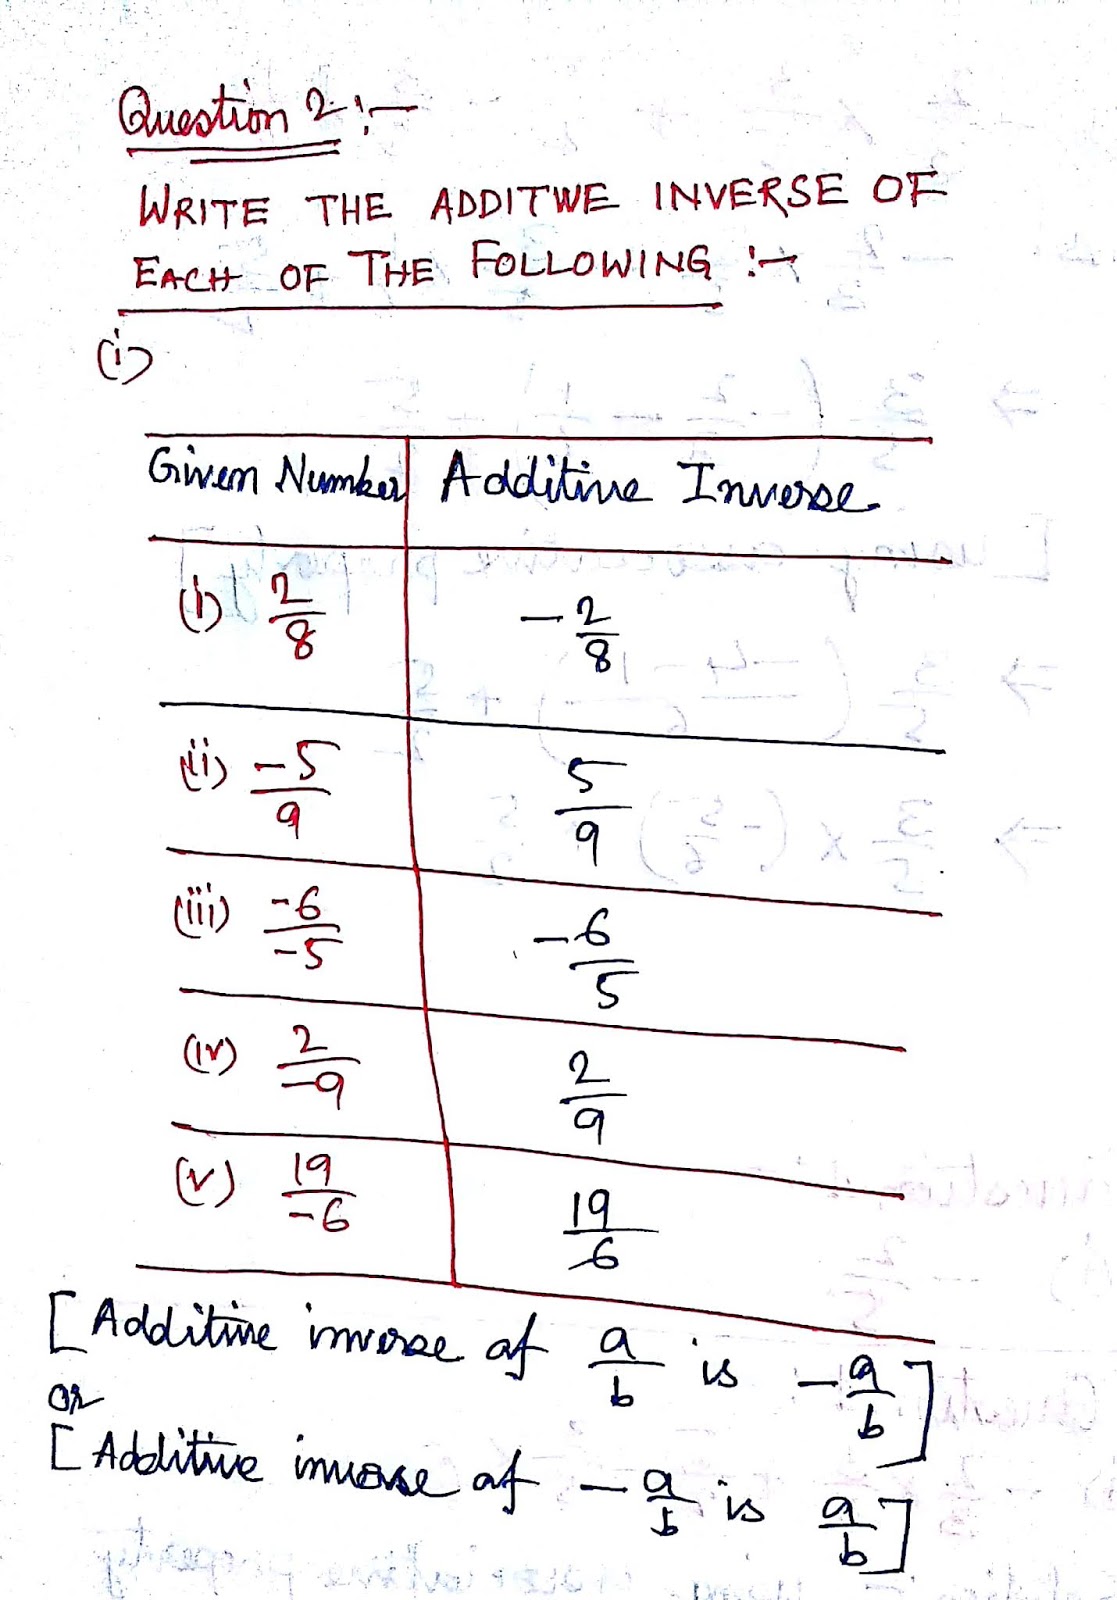 Question 2 :-
WRITE THE ADDITWE INVERSE OF
EACH OF THE FOLLOWING :-
(i)
Given Number Additive Inverse
(i) 2/8 -2/8
(ii) -5/9 5/9
(iii) -6/-5 -6/5
(iv) 2/-9 2/9
(v) 19/-6 19/6
[Additive inverse of a/b is -a/b]
or
[Additive inverse of -a/b is a/b]